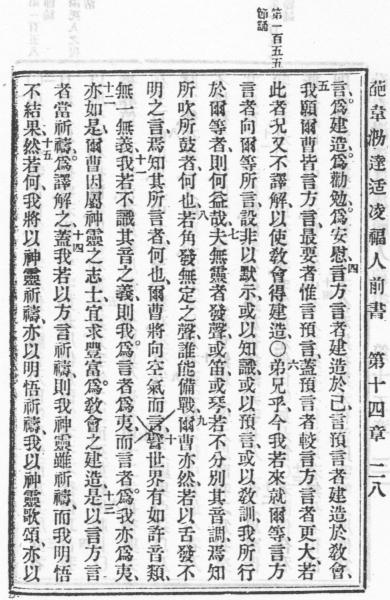 葩韋勑達适凌福人前書　第十四章　二八
第一百五五
節誦
言、爲建造、爲勸勉、爲安慰、四言方言者建造於已、言預言者建造於教會、
五我願爾曹皆言方言、最要者惟言預言、蓋預言者較言方言者更大、若
此者、況又不譯解、以使教會得建造、〇六弟兄乎、今我若來就爾等、言方
言者、向爾等所言、設非以默示、或以知識、或以預言、或以教訓、我所行
於爾等者、則何益哉、七夫無靈者發聲、或笛或琴、若不分別其音調、焉知
所吹所鼓者何也、八若角發無定之聲、誰能備戰、九爾曹亦然、若以舌發不
明之言、焉知其所言者何也、爾曹將向空氣而言、十譬世界有如許音類、
無一無義、十一我若不識其音之義、則我爲言者爲夷、而言者爲我亦爲夷、
十二亦如是、爾曹因屬神靈之志士、宜求豐富、爲教會之建造、十三是以言方言
者、當祈禱、爲譯解之、十四蓋我若以方言祈禱、則我神靈雖祈禱、而我明悟
不結果、十五然若何、我將以神靈祈禱、亦以明悟祈禱、我以神靈歌頌、亦以